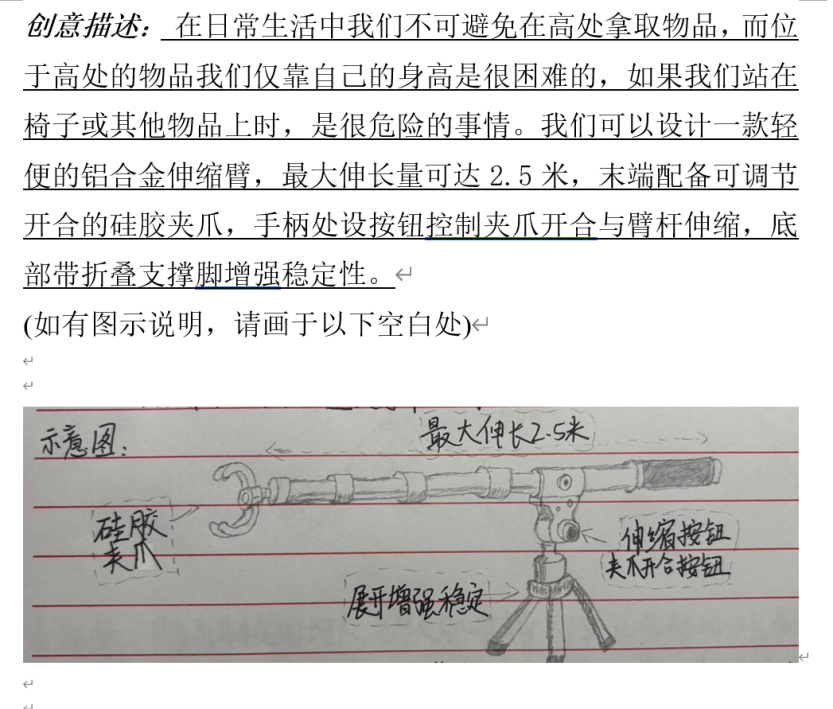 创意描述： 在日常生活中我们不可避免在高处拿取物品，而位
于高处的物品我们仅靠自己的身高是很困难的，如果我们站在
椅子或其他物品上时，是很危险的事情。我们可以设计一款轻
便的铝合金伸缩臂，最大伸长量可达 2.5 米，末端配备可调节
开合的硅胶夹爪，手柄处设按钮控制夹爪开合与臂杆伸缩，底
部带折叠支撑脚增强稳定性。
(如有图示说明，请画于以下空白处)
示意图：
最大伸长2.5米
硅胶
夹爪
伸缩按钮
夹爪开合按钮
展开增强稳定